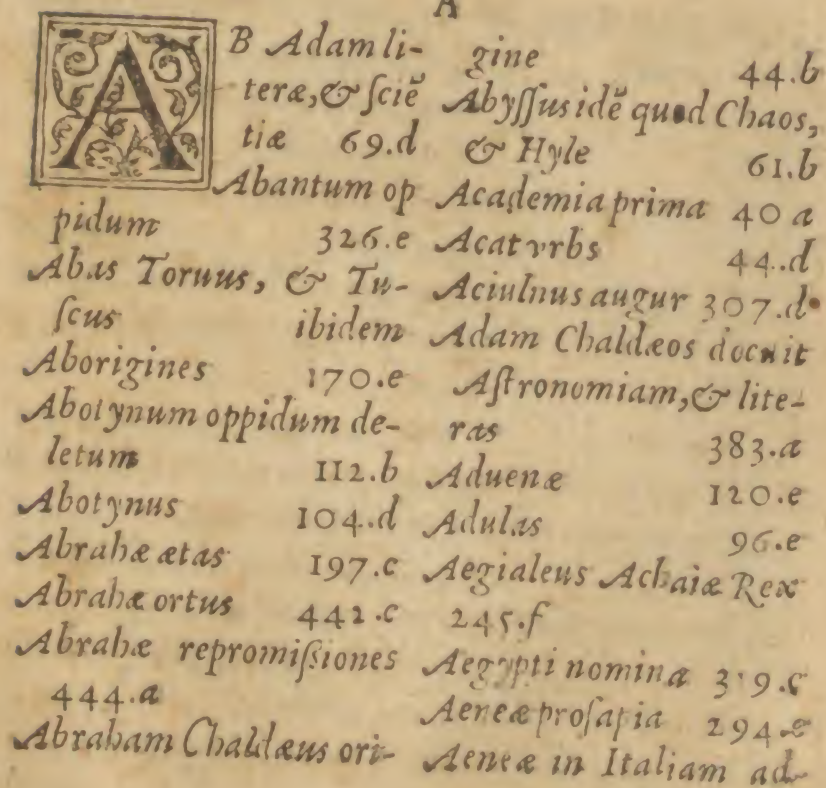 A
AB Adam li-
teræ, & sciē
tiæ 69.d
Abantum op
pidum 326.e
Abas Toruus, & Tu-
scus ibidem
Aborigines 170.e
Abotynum oppidum de-
letum 112.b
Abotynus 104.d
Abrahæ ætas 197.c
Abrahæ ortus 442.c
Abrahæ repromissiones
444.a
Abraham Chaldæus ori-
gine 44.b
Abyssus idē quod Chaos,
& Hyle 61.b
Academia prima 40 a
Acat vrbs 44.d
Aciulnus augur 307.d
Adam Chaldæos docuit
Astronomiam, & lite-
ras 383.a
Aduenæ 120.e
Adulas 96.e
Aegialeus Achaiæ Rex
245.f
Aegypti nomina
Aeneæ prosapia 294.e
Aeneæ in Italiam ad-